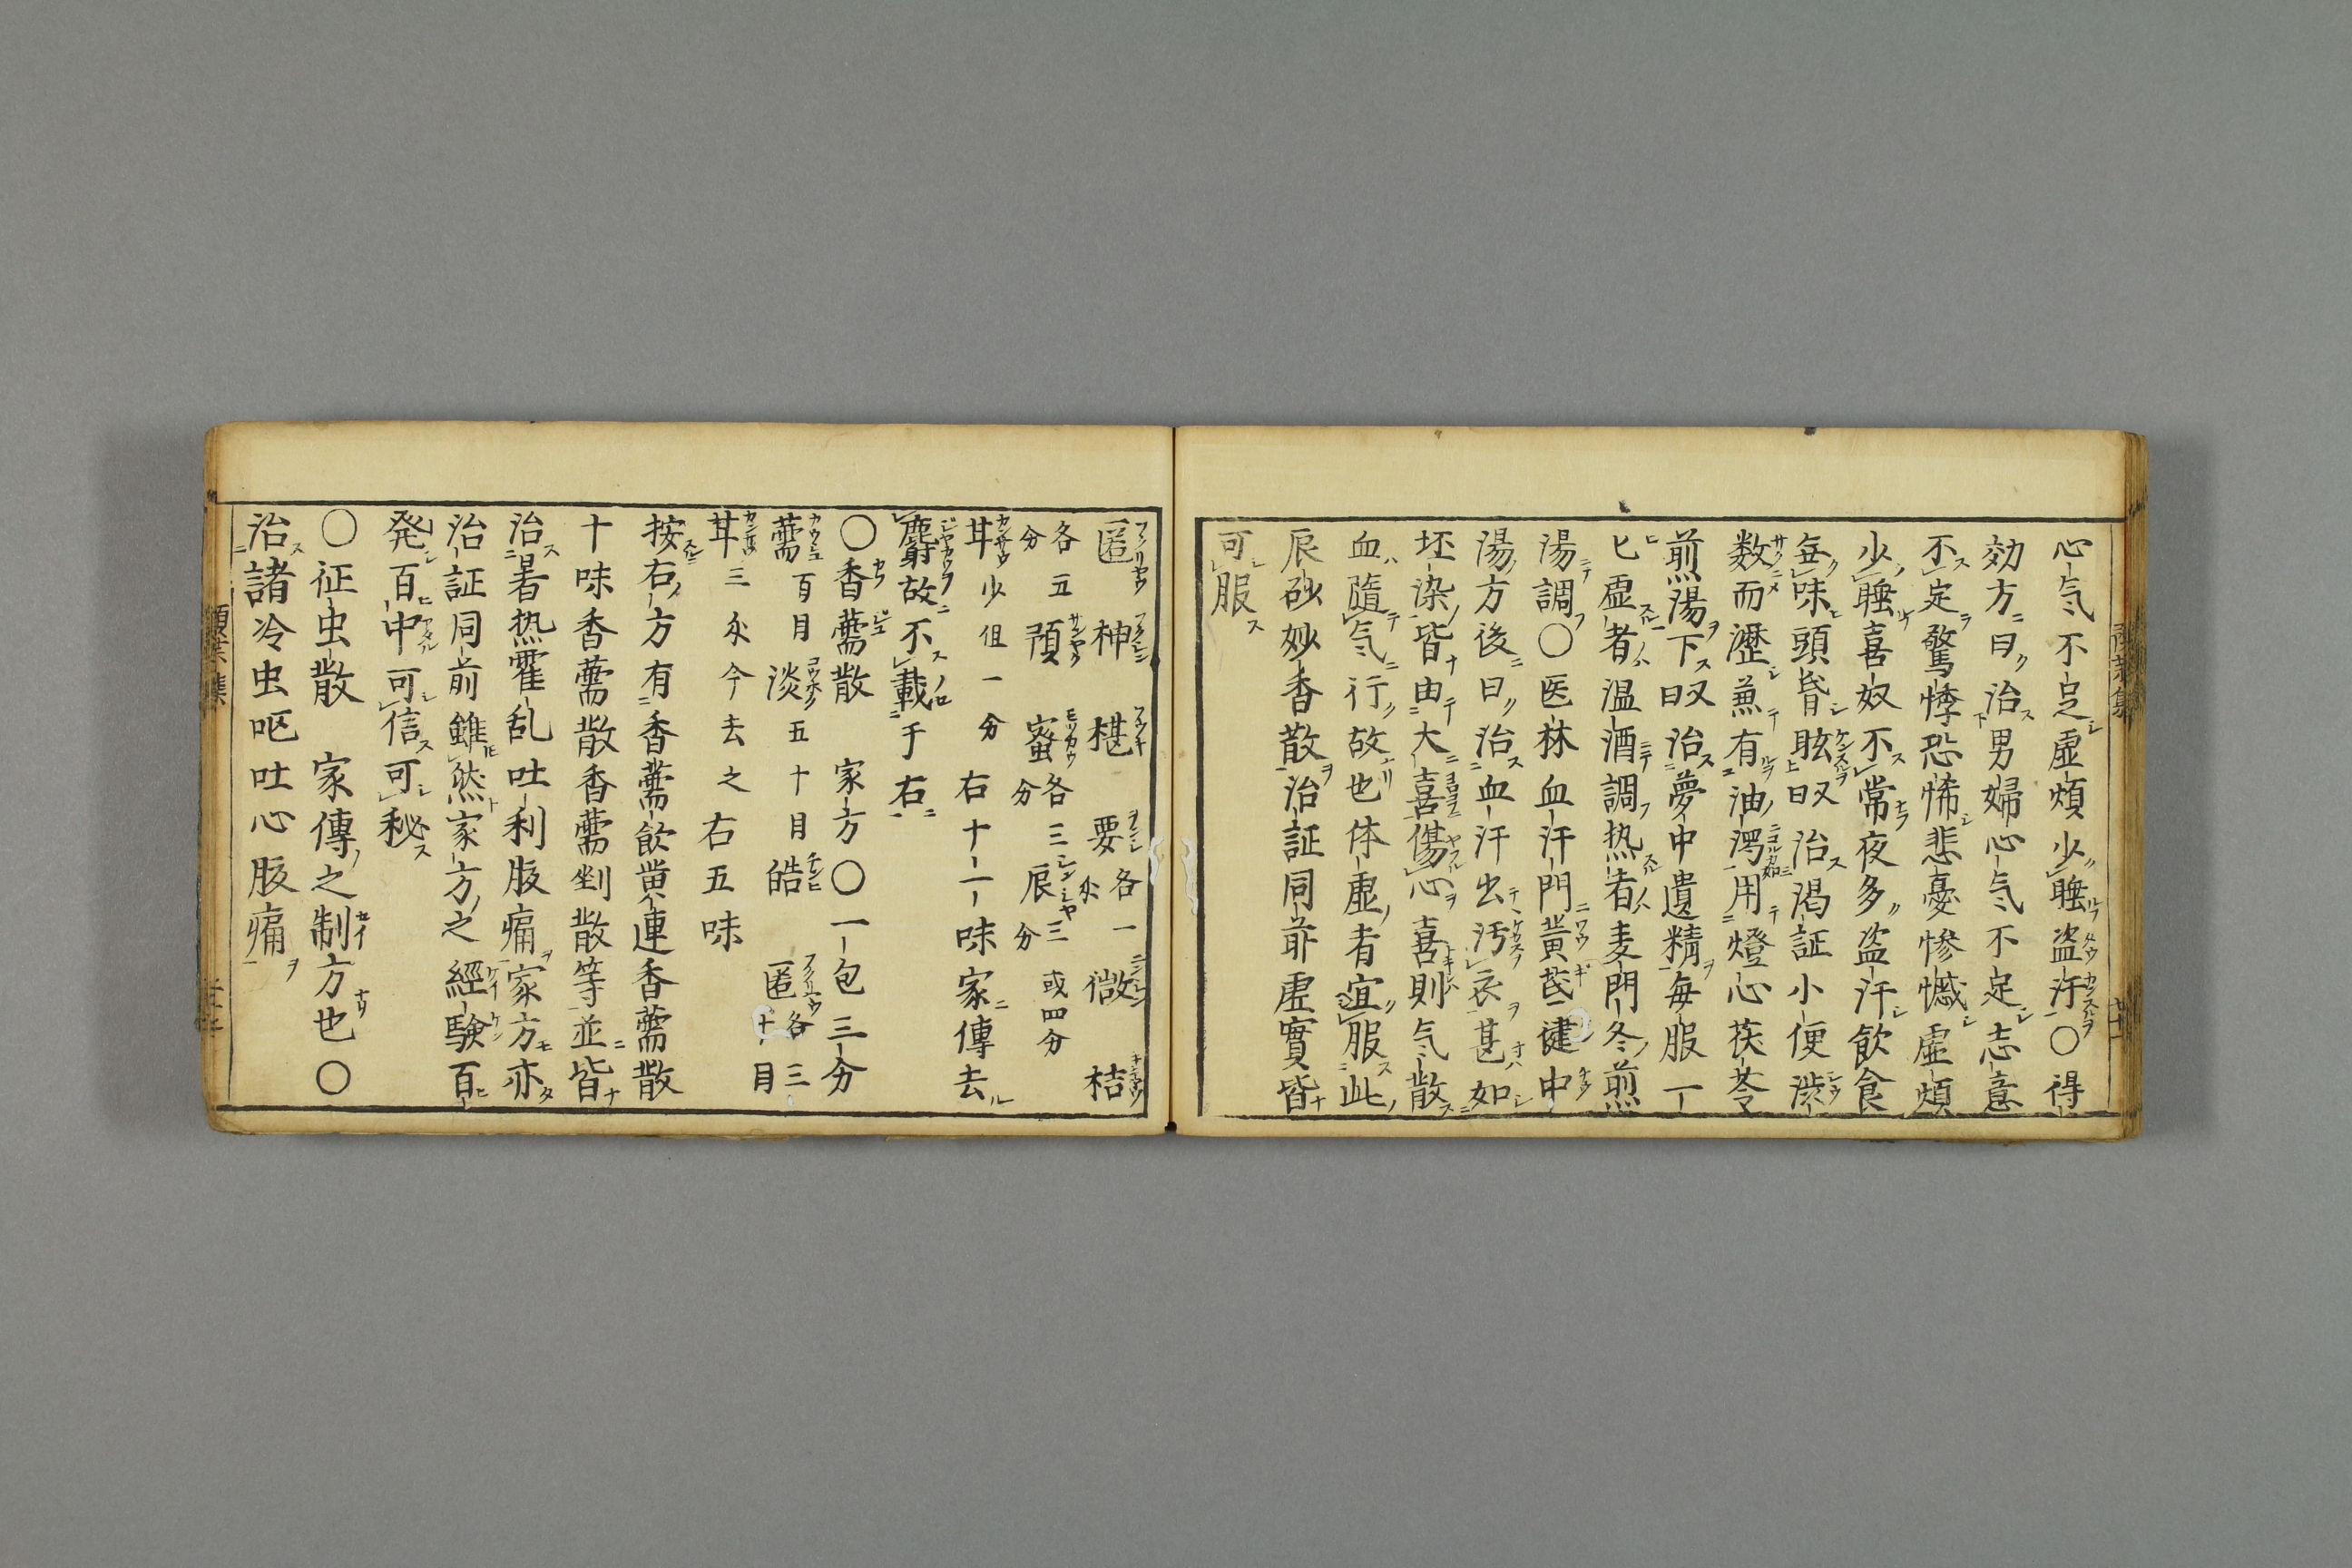 心气不足虚煩少睡盗汗〇得
効方曰治男婦心气不足志意
不定驚悸恐怖悲憂惨慽虚煩
少睡喜奴不常夜多盗汗飲食
無味頭昏眩又曰治渇証小便渋
数而瀝兼有油濁用燈心茯苓
煎湯下又曰治夢中遺精毎服一
匕虚者温酒調热者麦門冬煎
湯調〇医林血汗門黄茋建中
湯方後曰治血汗出汚衣甚如
坯染皆由大喜傷心喜則气散
血隨气行故也体虚者宜服此
辰砂妙香散治証同前虚實皆
可服
匿 神 椹 要各一分 微 桔
各五分 預 蜜各三分 辰三或四分
甘少但一分 右十一味家傳去
麝故不載于右
〇香薷散 家方〇一包三分
薷百目 淡五十目 皓 匿各三十目
甘三分今去之 右五味
按右方有香薷飲黄連香薷散
十味香薷散香薷剉散等並皆
治暑热霍乱吐利腹痛家方亦
治証同前雖然家方之經験百
発百中可信可秘
〇征虫散 家傳之制方也〇
治諸冷虫呕吐心腹痛